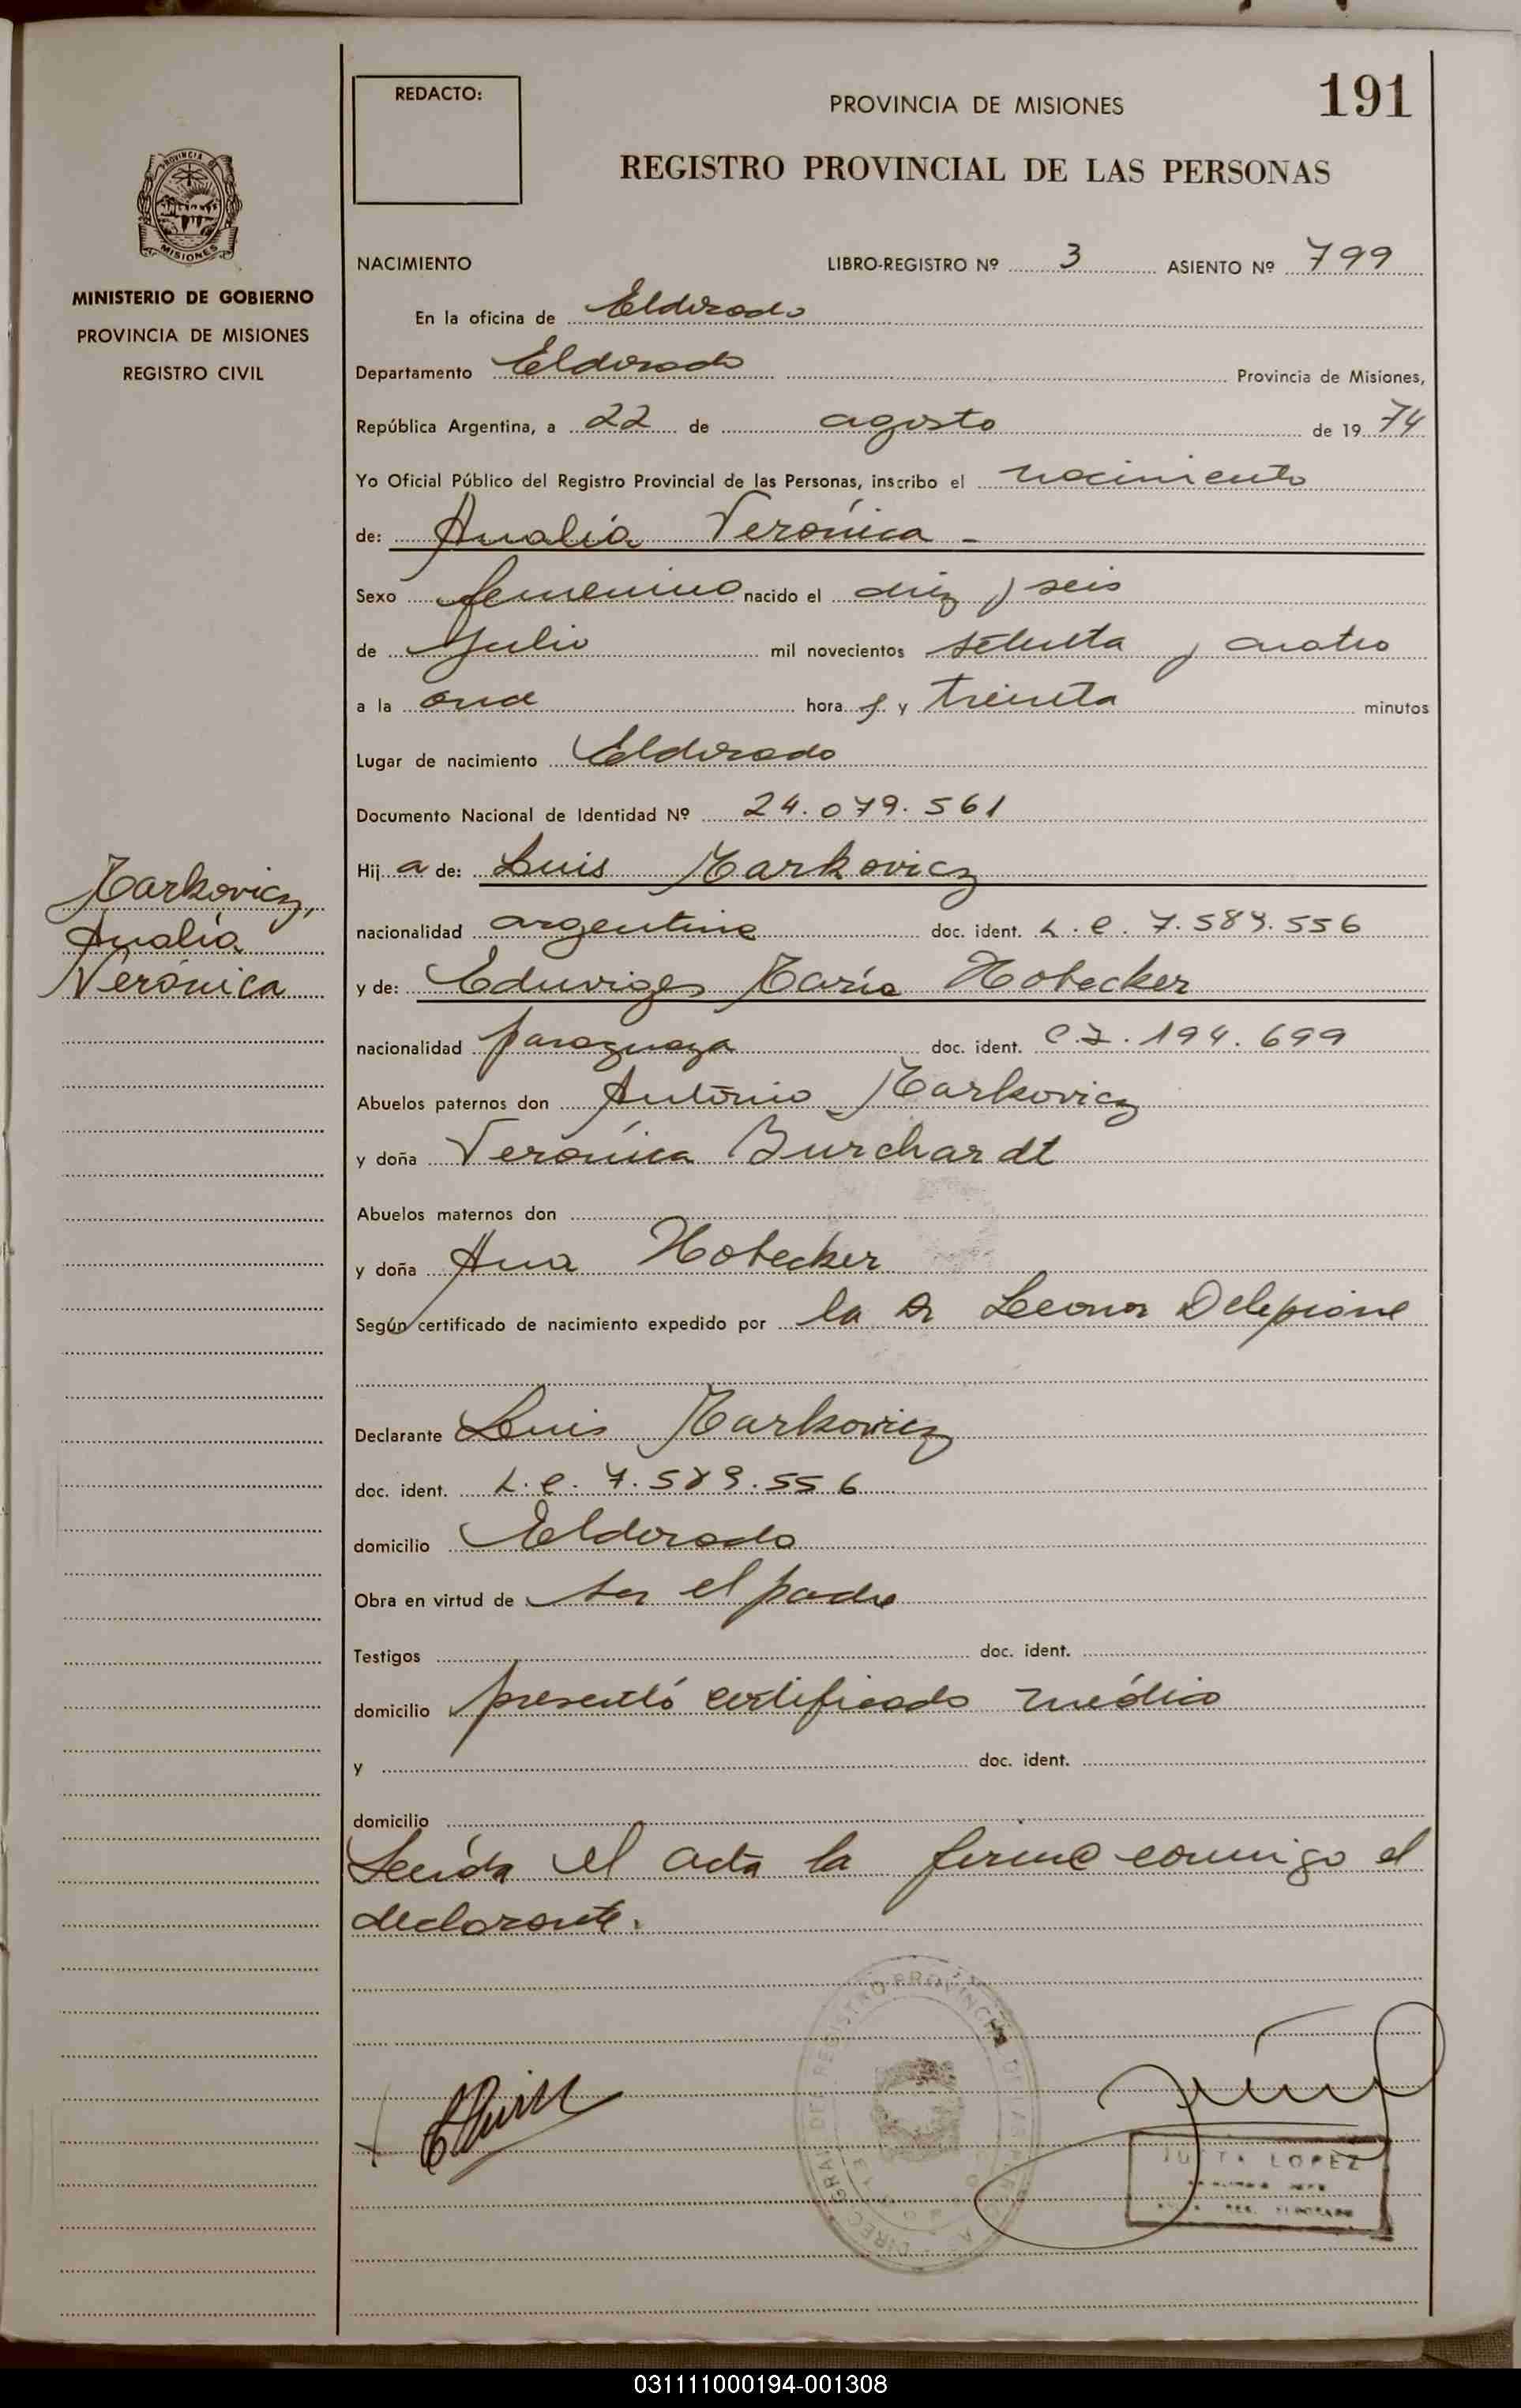 REDACTO:
PROVINCIA DE MISIONES
191
REGISTRO PROVINCIAL DE LAS PERSONAS
PROVINCIA DE
MISIONES
MINISTERIO DE GOBIERNO
PROVINCIA DE MISIONES
REGISTRO CIVIL
NACIMIENTO LIBRO-REGISTRO Nº 3 ASIENTO Nº 799
En la oficina de Eldorado
Departamento Eldorado Provincia de Misiones,
República Argentina, a 22 de agosto de 1974
Yo Oficial Público del Registro Provincial de las Personas, inscribo el nacimiento
de: Analía Verónica -
Sexo femenino nacido el diez y seis
de Julio mil novecientos setenta y cuatro
a la once hora s y treinta minutos
Lugar de nacimiento Eldorado
Documento Nacional de Identidad Nº 24.079.561
Markovicz,
Analía
Verónica
Hij a de: Luis Markovicz
nacionalidad argentina doc. ident. L.E. 7.589.556
y de: Eduviges María Hobecker
nacionalidad paraguaya doc. ident. C.I. 194.699
Abuelos paternos don Antonio Markovicz
y doña Verónica Burchardt
Abuelos maternos don
y doña Ana Hobecker
Según certificado de nacimiento expedido por la Dr Leonor Delepiane
Declarante Luis Markovicz
doc. ident. L.E. 7.589.556
domicilio Eldorado
Obra en virtud de ser el padre
Testigos doc. ident.
domicilio presentó certificado médico
y doc. ident.
domicilio
Leída el acta la firma conmigo el
declarante.
REGISTRO PROVINCIAL DE LAS
LOPEZ
031111000194-001308